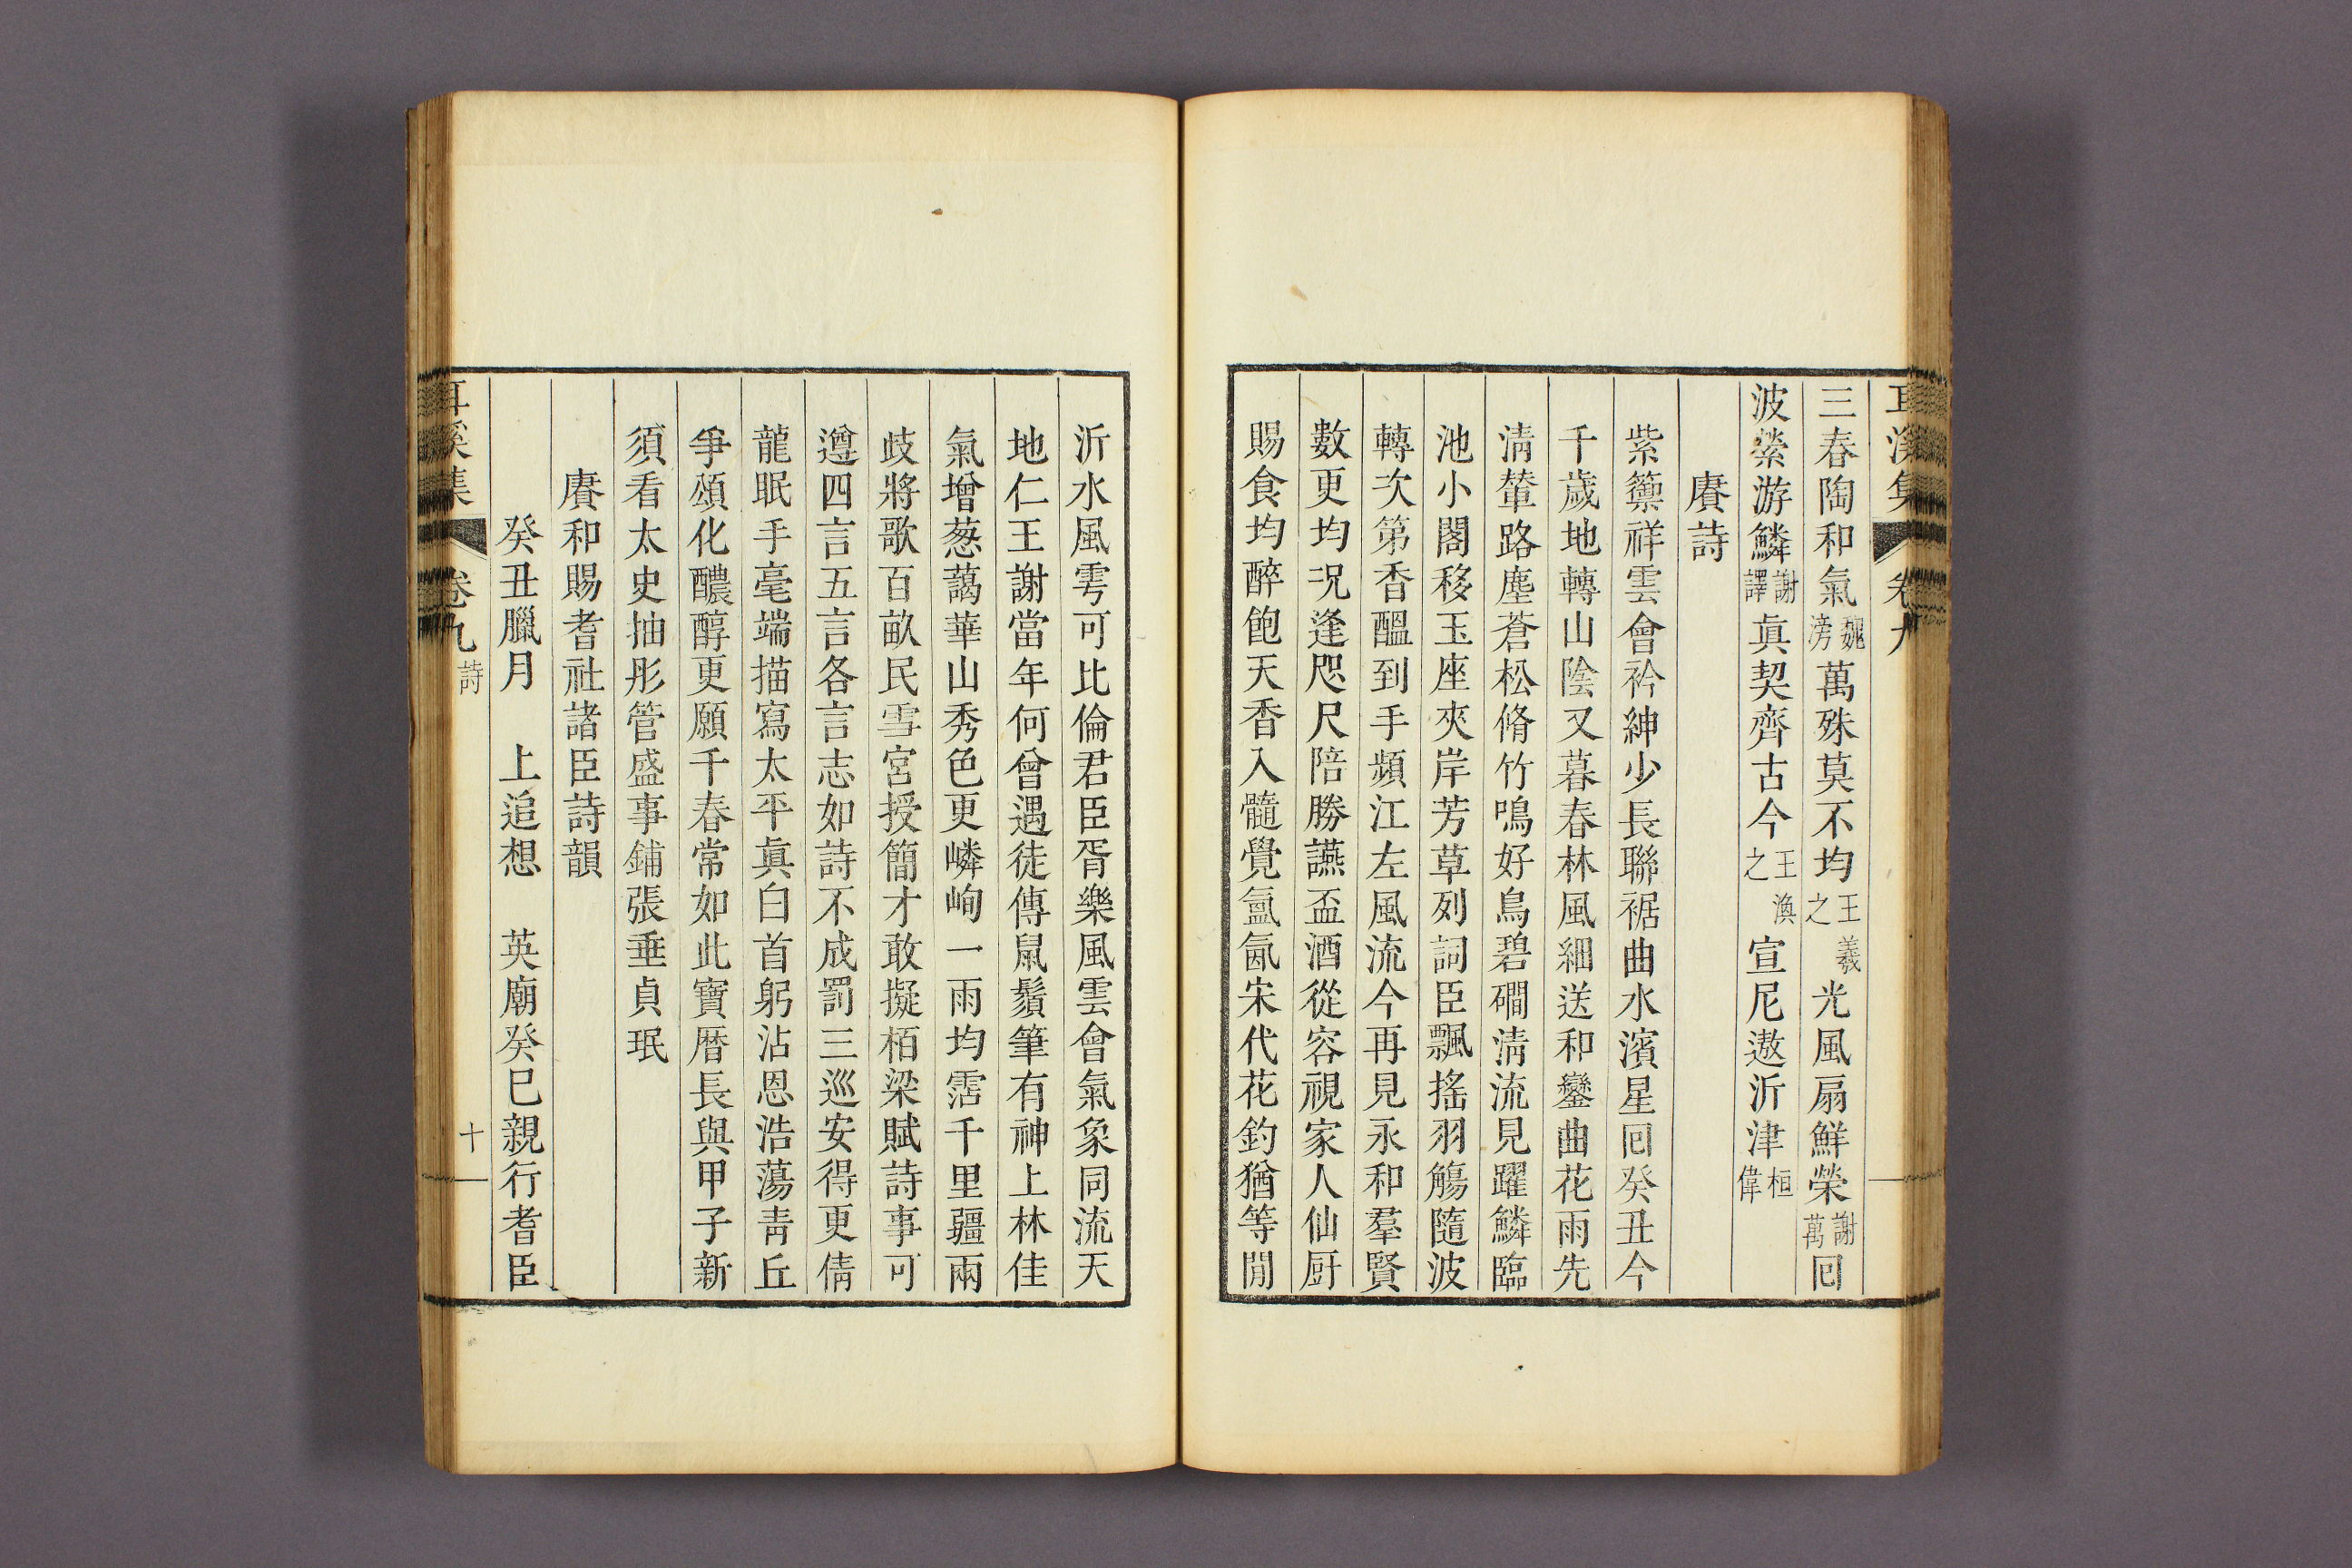 耳溪集 卷九
三春陶和氣魏滂萬殊莫不均王羲之光風扇鮮榮謝萬回
波縈游鱗謝譯眞契齊古今王渙之宣尼遨沂津桓偉
賡詩
紫籞祥雲會衿紳少長聯裾曲水濱星回癸丑今
千歲地轉山陰又暮春林風細送和鑾曲花雨先
淸輦路塵蒼松脩竹鳴好鳥碧磵淸流見躍鱗臨
池小閣移玉座夾岸芳草列詞臣飄搖羽觴隨波
轉次第香醞到手頻江左風流今再見永和羣賢
數更均况逢咫尺陪勝讌盃酒從容視家人仙厨
賜食均醉飽天香入髓覺氳氤宋代花釣猶等閒
沂水風雩可比倫君臣胥樂風雲會氣象同流天
地仁王謝當年何曾遇徒傳鼠鬚筆有神上林佳
氣增葱藹華山秀色更嶙峋一雨均霑千里疆兩
歧將歌百畝民雪宮授簡才敢擬栢梁賦詩事可
遵四言五言各言志如詩不成罰三巡安得更倩
龍眠手毫端描寫太平眞白首躬沾恩浩蕩靑丘
爭頌化醲醇更願千春常如此寶曆長與甲子新
須看太史抽彤管盛事鋪張垂貞珉
賡和賜耆社諸臣詩韻
癸丑臘月 上追想 英廟癸巳親行耆臣
耳溪集 卷九 詩 十